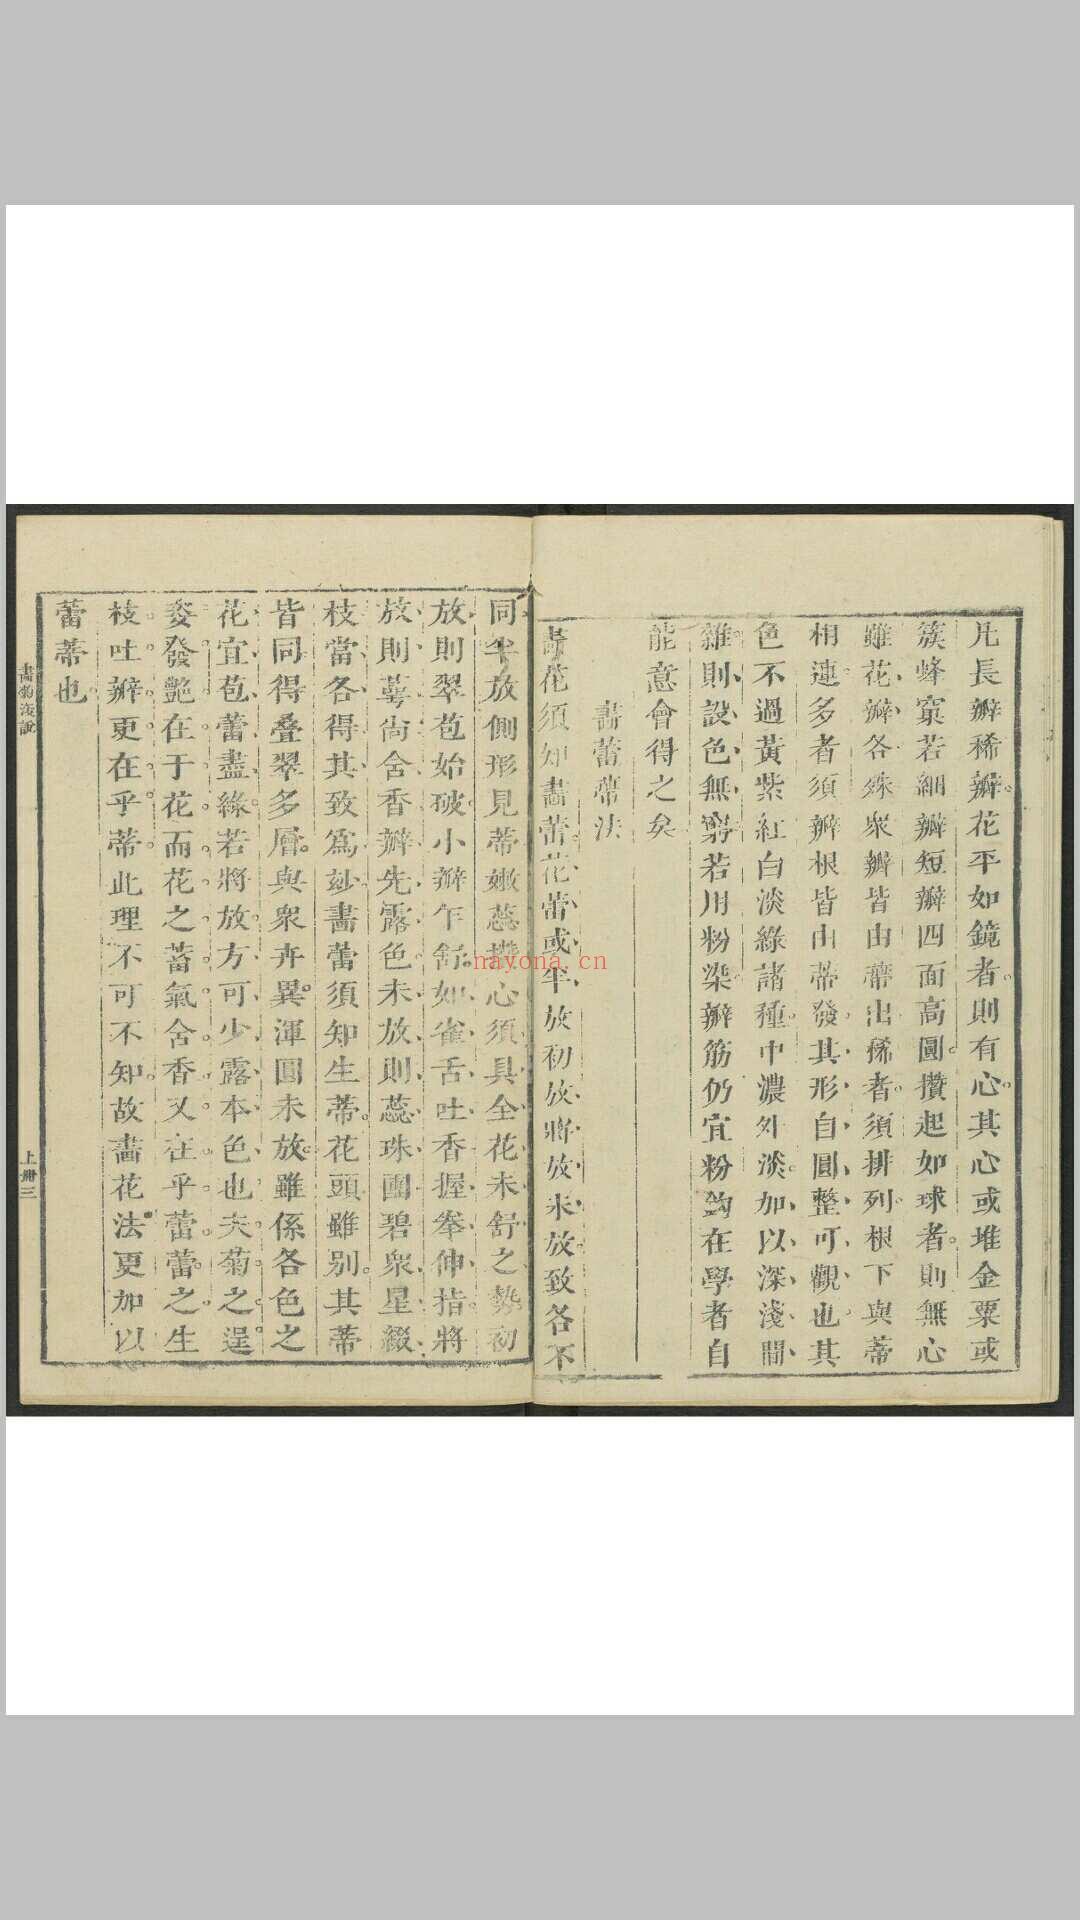 凡長瓣稀瓣花平如鏡者則有心其心或堆金粟或
簇蜂窠若細瓣短瓣四面高圓攢起如球者則無心
雖花瓣各殊衆瓣皆由蒂出稀者須排列根下與蒂
相連多者須瓣根皆由蒂發其形自圓整可觀也其
色不過黃紫紅白淡綠諸種中濃外淡加以深淺間
雜則設色無窮若用粉染瓣筋仍宜粉鈎在學者自
能意會得之矣
畫蕾蒂法
畫花須知畫蕾花蕾或半放初放將放未放致各不
同半放側形見蒂嫩蕊攢心須具全花未舒之勢初
放則翠苞始破小瓣乍舒如雀舌吐香握拳伸指將
放則萼尚含香瓣先露色未放則蕊珠團碧衆星綴
枝當各得其致爲玅畫蕾須知生蒂花頭雖別其蒂
皆同得叠翠多層與衆卉異渾圓未放雖係各色之
花宜苞蕾盡綠若將放方可少露本色也夫菊之逞
姿發艷在于花而花之蓄氣含香又在乎蕾蕾之生
枝吐瓣更在乎蒂此理不可不知故畫花法更加以
蕾蒂也
畫菊淺說
上冊三
nayona.cn